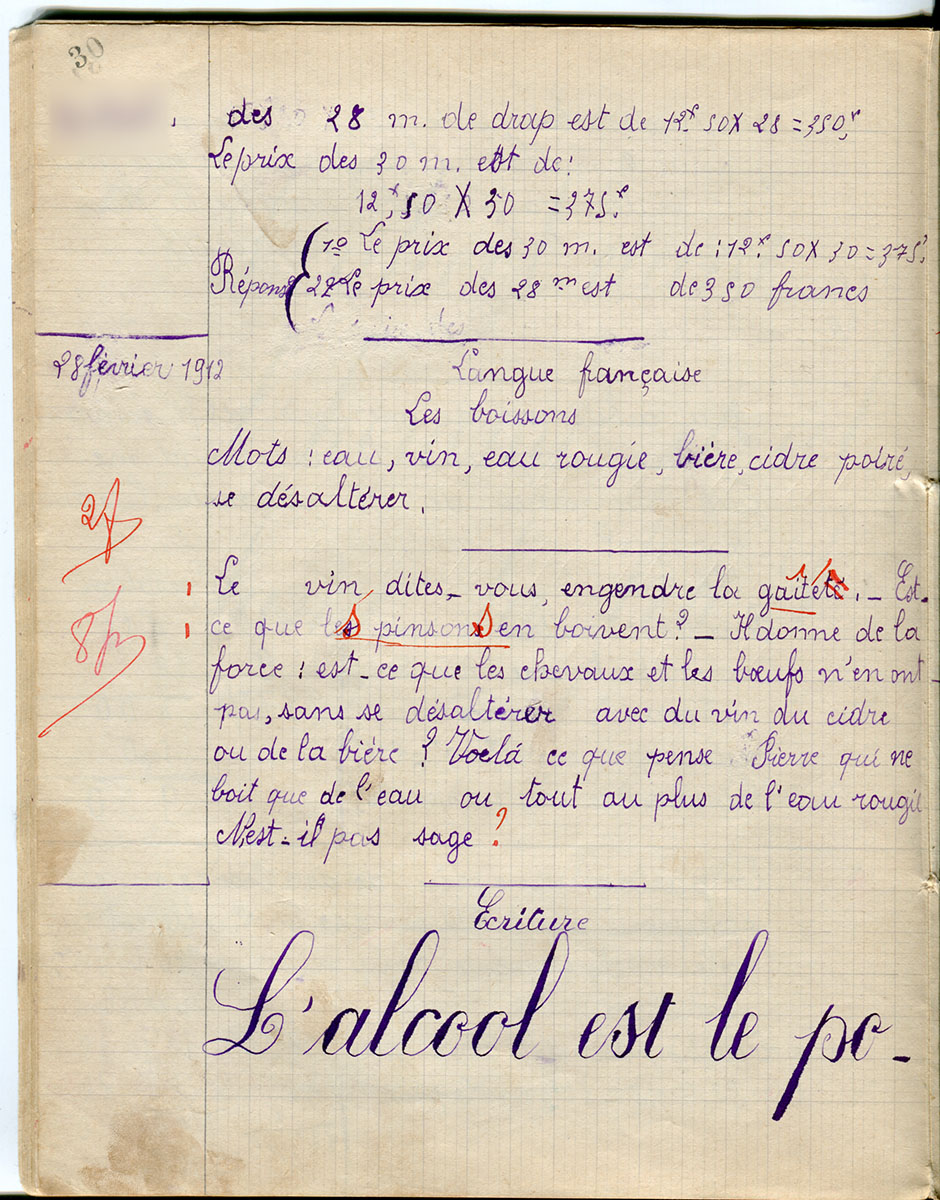 30
des 28 m. de drap est de 12f.50 X 28 = 350f.
Le prix des 30 m. est de:
12f.50 X 30 = 375f.
1º Le prix des 30 m. est de : 12f.50 X 30 = 375f.
Réponse
2º Le prix des 28 m est de 350 francs
28 février 1912
Langue française
Les boissons
Mots : eau, vin, eau rougie, bière, cidre poiré,
se désaltérer.
2f
Le vin, dites-vous, engendre la gaîté. - Est-
ce que les pinsons en boivent ? - Il donne de la
8p
force : est-ce que les chevaux et les bœufs n'en ont
pas, sans se désaltérer avec du vin du cidre
ou de la biére ? Voelá ce que pense Pierre qui ne
boit que de l'eau ou tout au plus de l'eau rougie
N'est-il pas sage ?
Ecriture
L'alcool est le po-